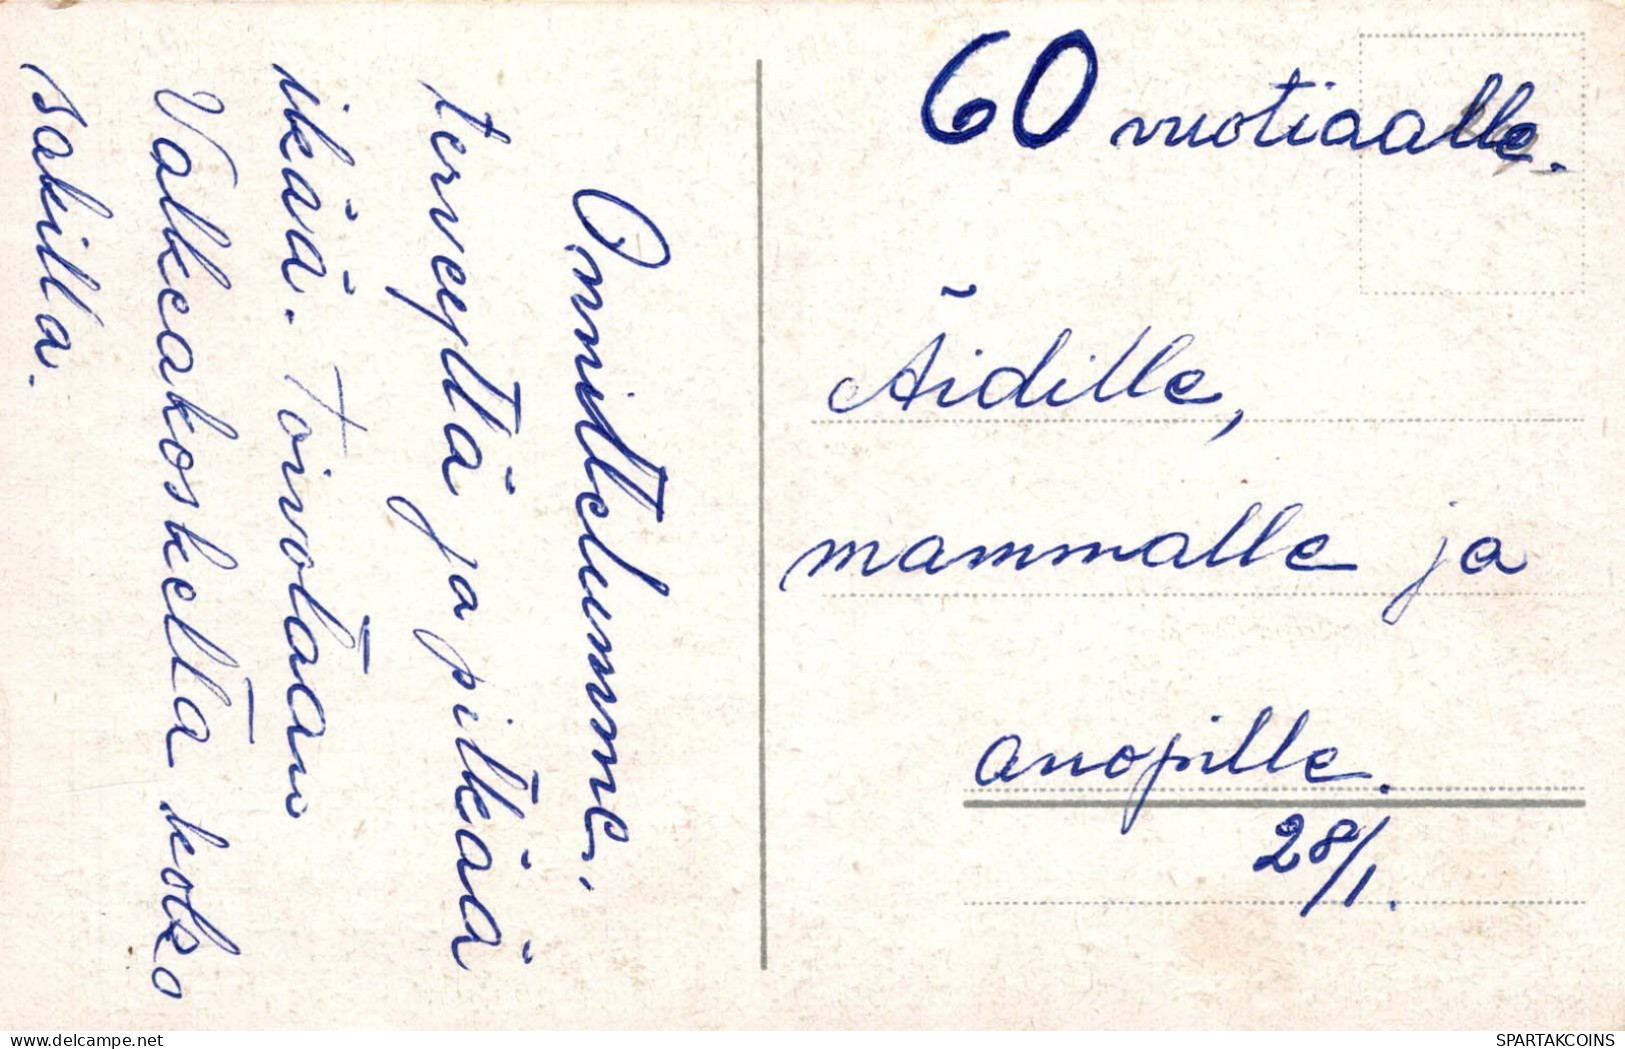 60 vuotiaalle.
Äidille,
mammalle ja
anopille.
28/1.
Onnittelumme.
terveyttä ja pitkää
ikää. Toivotaan
Valkeakoskelta koko
sakilla.
www.delcampe.net
SPARTAKCOINS